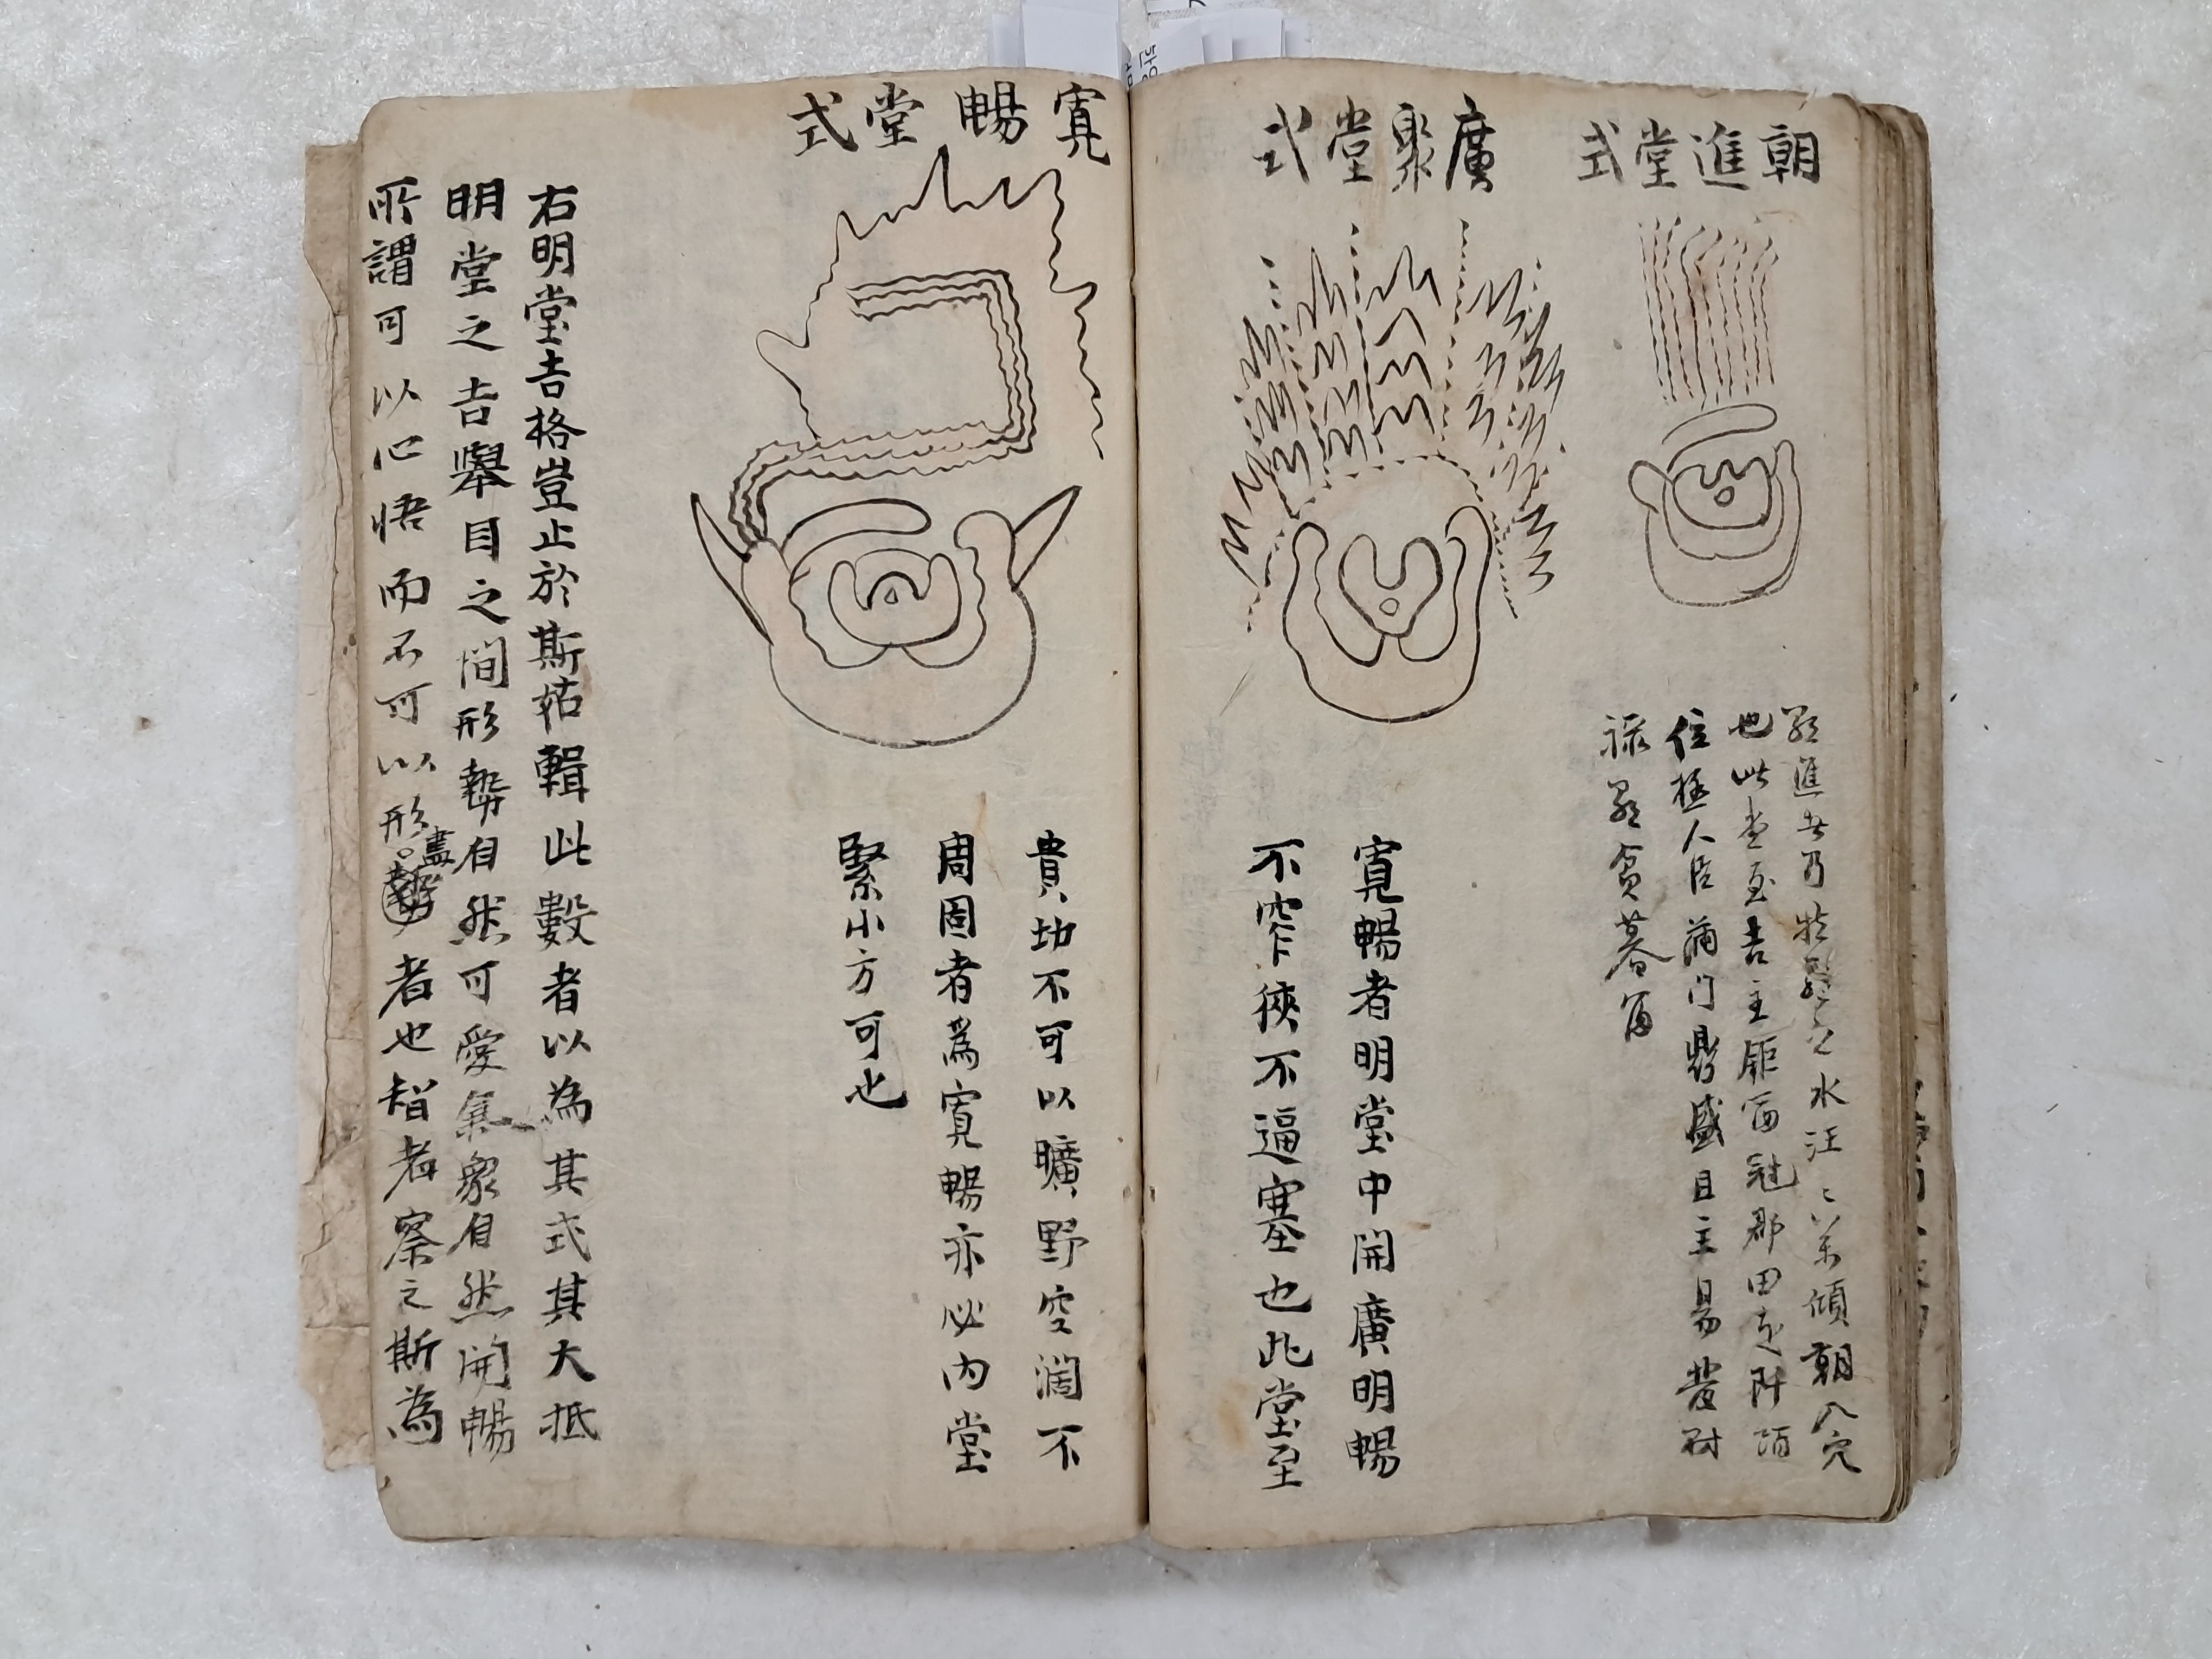 朝進堂式
廣聚堂式
朝進者乃特朝之水汪〻萬傾朝入穴
也此堂至吉主鉅富冠郡田連阡陌
位極人臣滿門鼎盛且主易發財
祿朝貧暮富
寬暢者明堂中開廣明暢
不窄狹不逼塞也此堂至
寬暢堂式
貴功不可以曠野空濶不
周固者為寬暢亦必內堂
緊小方可也
右明堂吉格豈止於斯姑輯此數者以為其式其大抵
明堂之吉舉目之間形勢自然可愛氣象自然開暢
所謂可以心悟而不可以形盡者也智者察之斯為